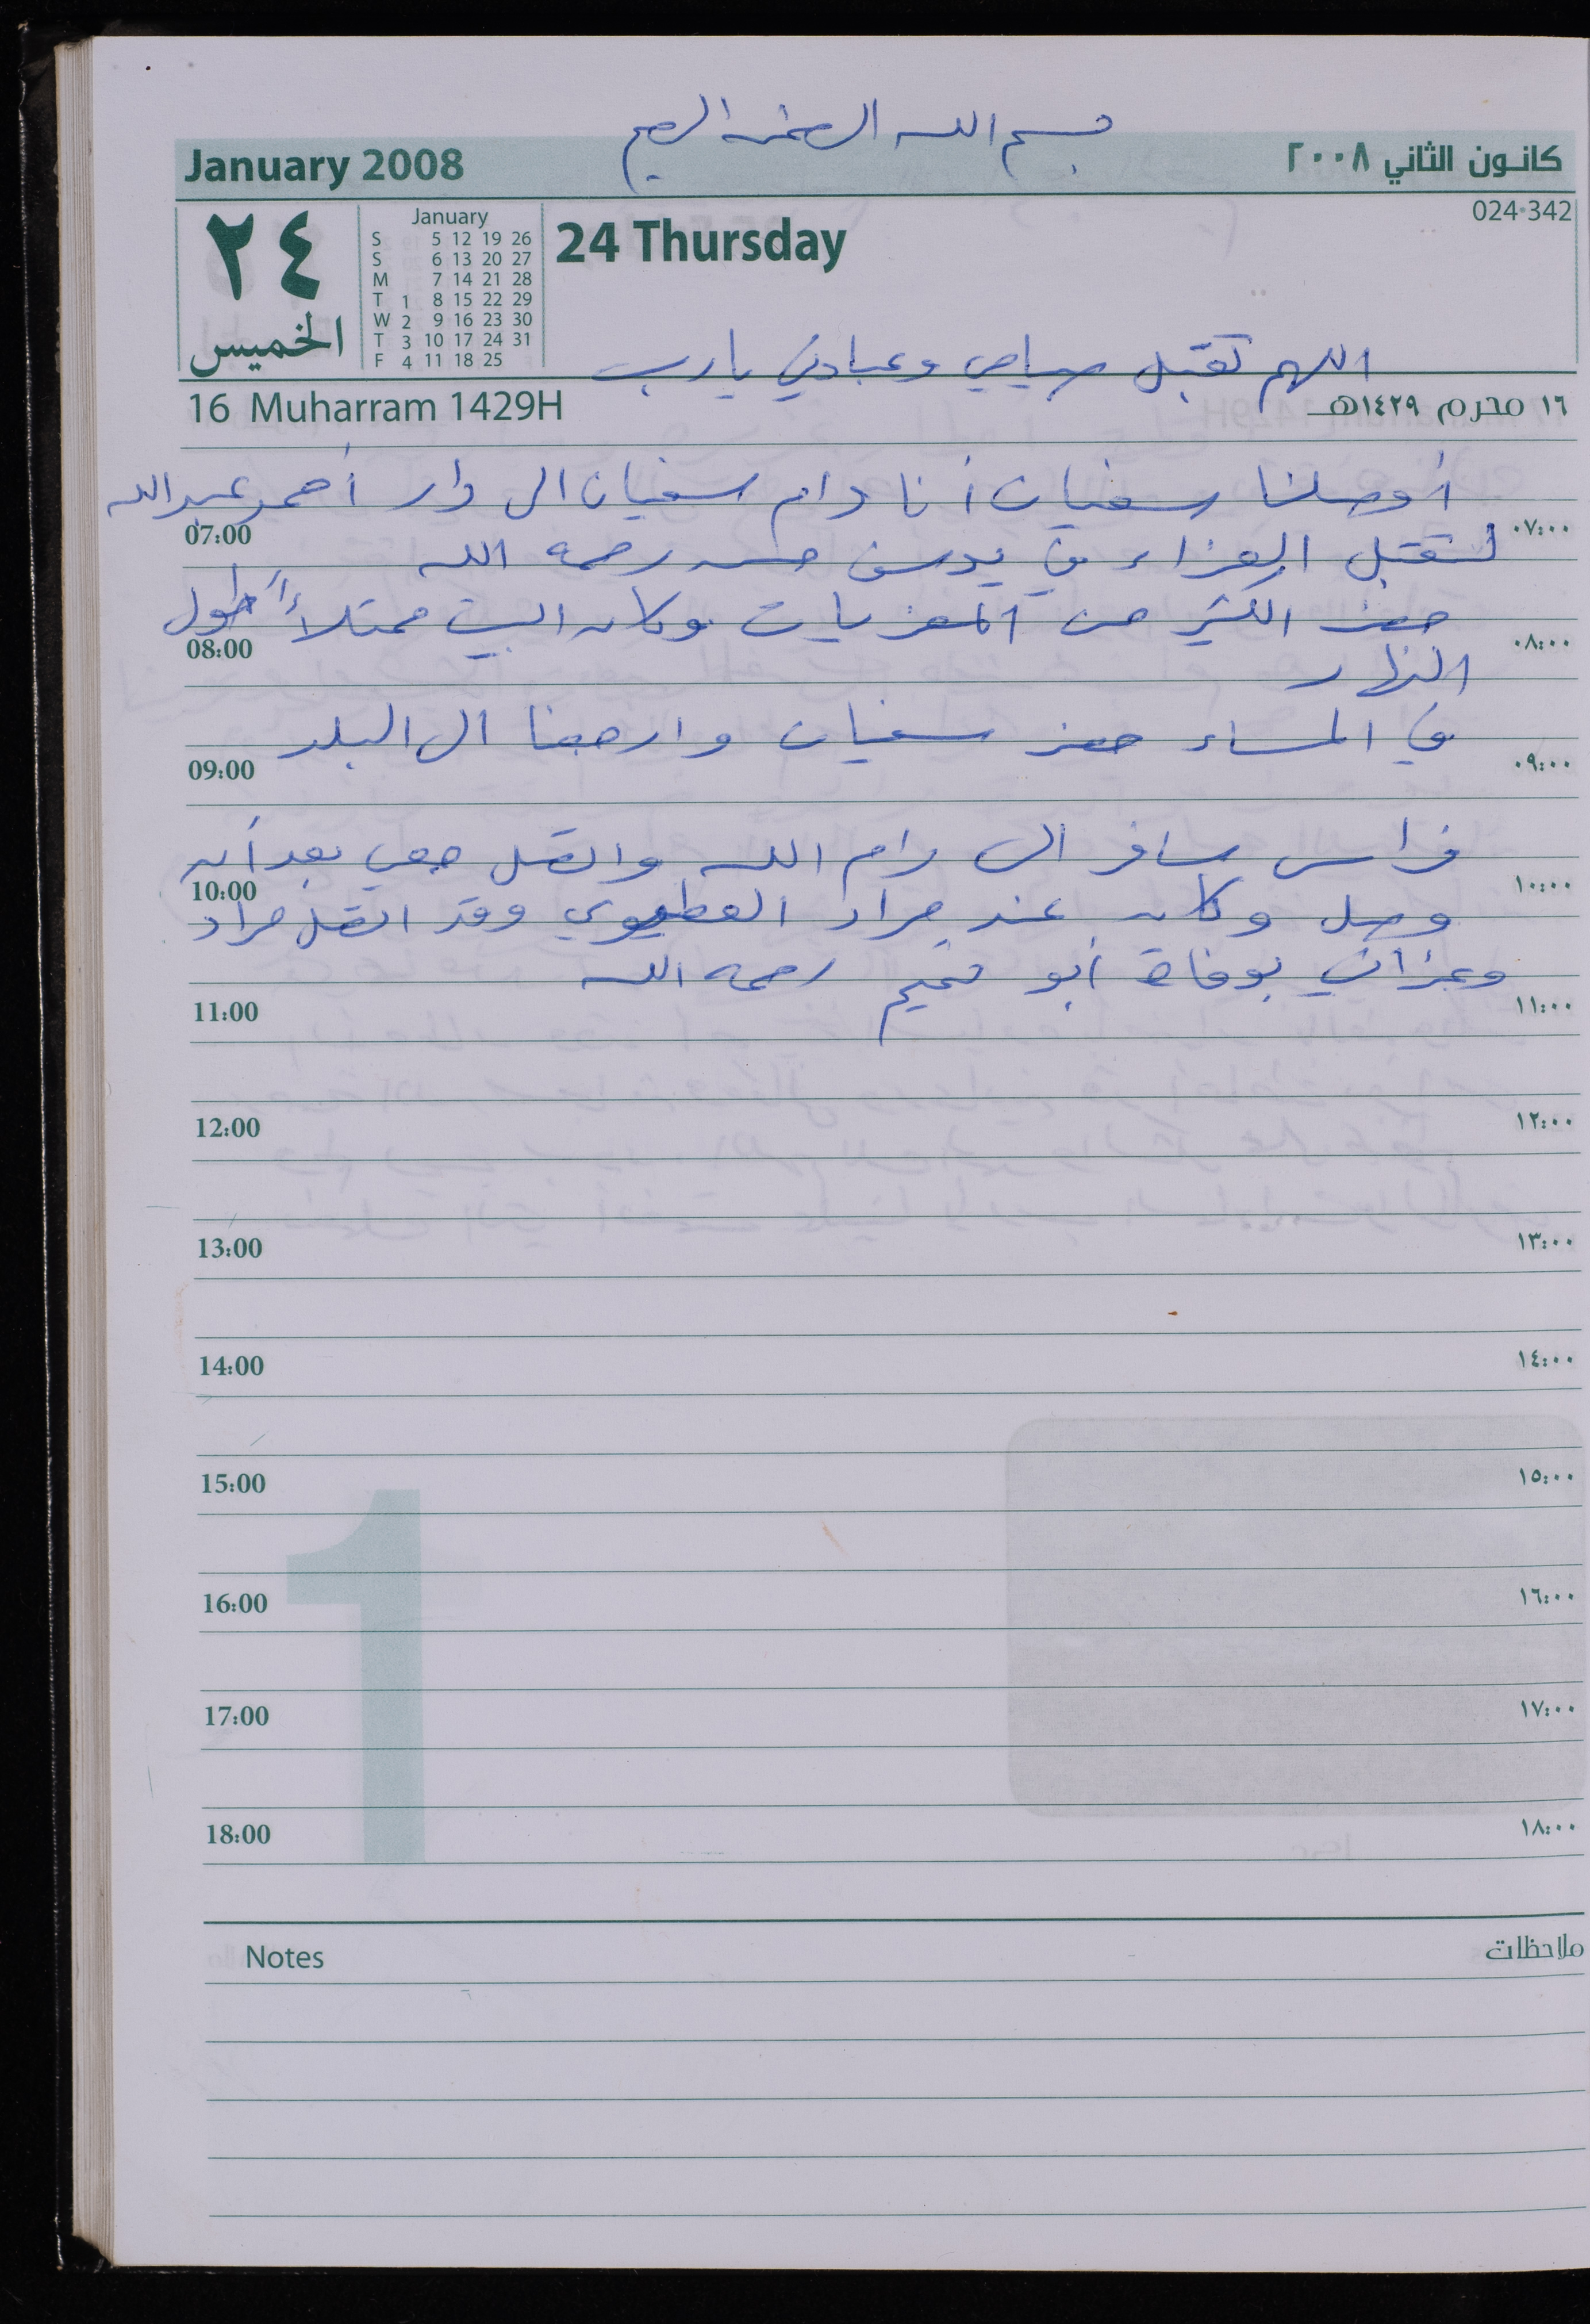 بسم الله الرحمن الرحيم
January 2008
كانون الثاني ٢٠٠٨
024-342
٢٤
الخميس
January
S 5 12 19 26
S 6 13 20 27
M 7 14 21 28
T 1 8 15 22 29
W 2 9 16 23 30
T 3 10 17 24 31
F 4 11 18 25
24 Thursday
اللهم تقبل صيامي وعبادتي يارب
16 Muharram 1429H
١٦ محرم ١٤٢٩هـ
أوصلنا سفيان أنا وام سفيان الى دار أحمد عبدالله
07:00 ٠٧:٠٠
لنتقبل العزاء في يوسف حسن رحمه الله
حضر الكثير من المعزيات وكان البيت ممتلاءً طول
08:00 ٠٨:٠٠
النهار
في المساء حضر سفيان وارجعنا الى البلد
09:00 ٠٩:٠٠
فراس سافر الى رام الله واتصل معي بعد أن
10:00 ١٠:٠٠
وصل وكان عند مراد وقد اتصل مراد
وعزاني بوفاة أبو تميم رحمه الله
11:00 ١١:٠٠
12:00 ١٢:٠٠
13:00 ١٣:٠٠
14:00 ١٤:٠٠
15:00 ١٥:٠٠
1
16:00 ١٦:٠٠
17:00 ١٧:٠٠
18:00 ١٨:٠٠
Notes ملاحظات